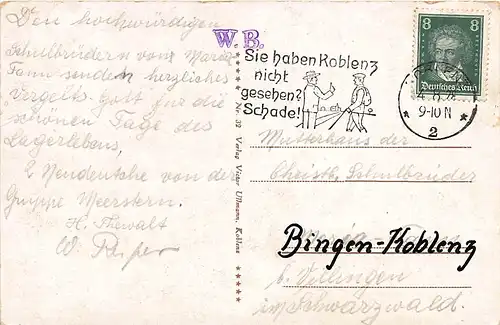 Den hochwürdigen
Schulbrüdern vom Maria
Tann senden herzliches
Vergelts Gott für die
schönen Tage des
Lagerlebens,
2 Neudeutsche von der
Gruppe Meerstern.
H. Thewalt
W.
W. B.
Sie haben Koblenz
nicht
gesehen?
Schade!
8 8
Deutsches Reich
9-10 N
* 2 *
Nr. 32 Verlag Victor Ullmann, Koblenz
Mutterhaus der
Christl. Schulbrüder
Maria
Bingen-Koblenz
b. Villingen
im Schwarzwald.